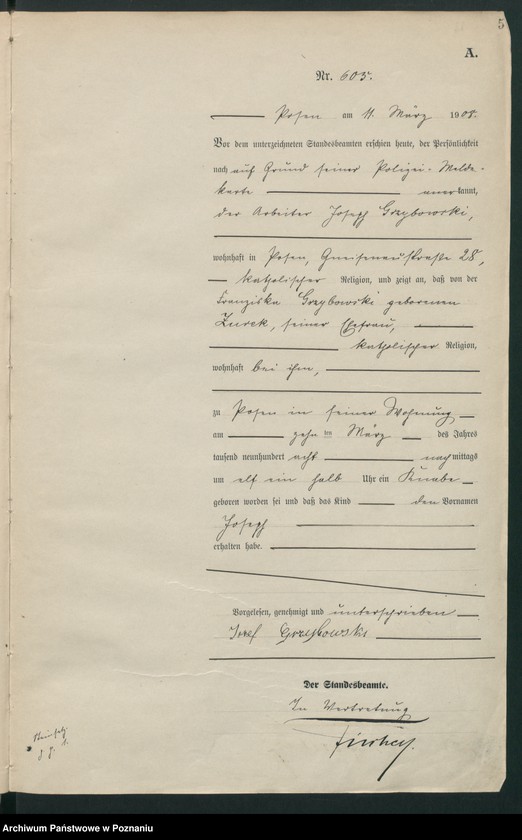 5
A.
Nr. 605.
Posen am 11. März 1908.
Vor dem unterzeichneten Standesbeamten erschien heute, der Persönlichkeit
nach auf Grund seiner Polizei-Melde-
karte anerkannt,
der Arbeiter Joseph Grzybowski,
wohnhaft in Posen, Gneisenaustraße 28,
katholischer Religion, und zeigt an, daß von der
Franziska Grzybowski geborenen
Zurek, seiner Ehefrau,
katholischer Religion,
wohnhaft bei ihm,
zu Posen in seiner Wohnung
am zehnten März des Jahres
tausend neunhundert acht nachmittags
um elf ein halb Uhr ein Knabe
geboren worden sei und daß das Kind den Vornamen
Joseph
erhalten habe.
Vorgelesen, genehmigt und unterschrieben
Józef Grzybowski
Der Standesbeamte.
In Vertretung
Archiwum Państwowe w Poznaniu